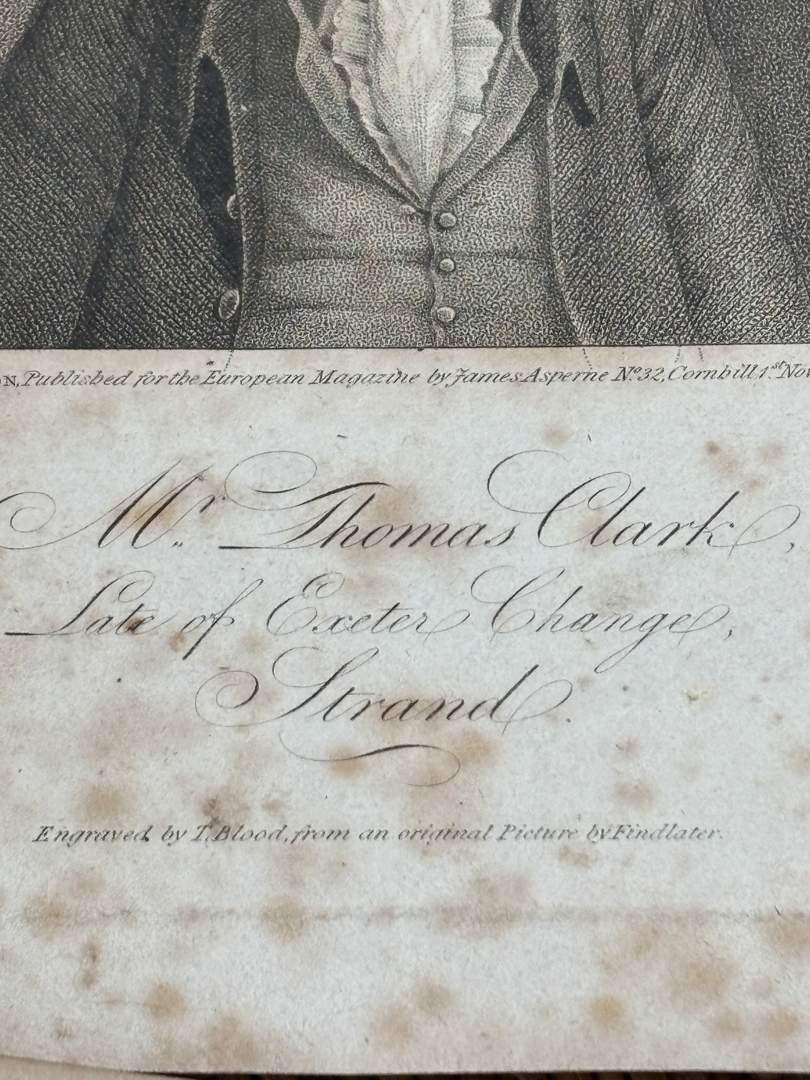 N, Published for the European Magazine by James Asperne No. 32, Cornhill 1.st Nov
Mr. Thomas Clark,
Late of Exeter Change,
Strand.
Engraved by T. Blood, from an original Picture by Findlater.